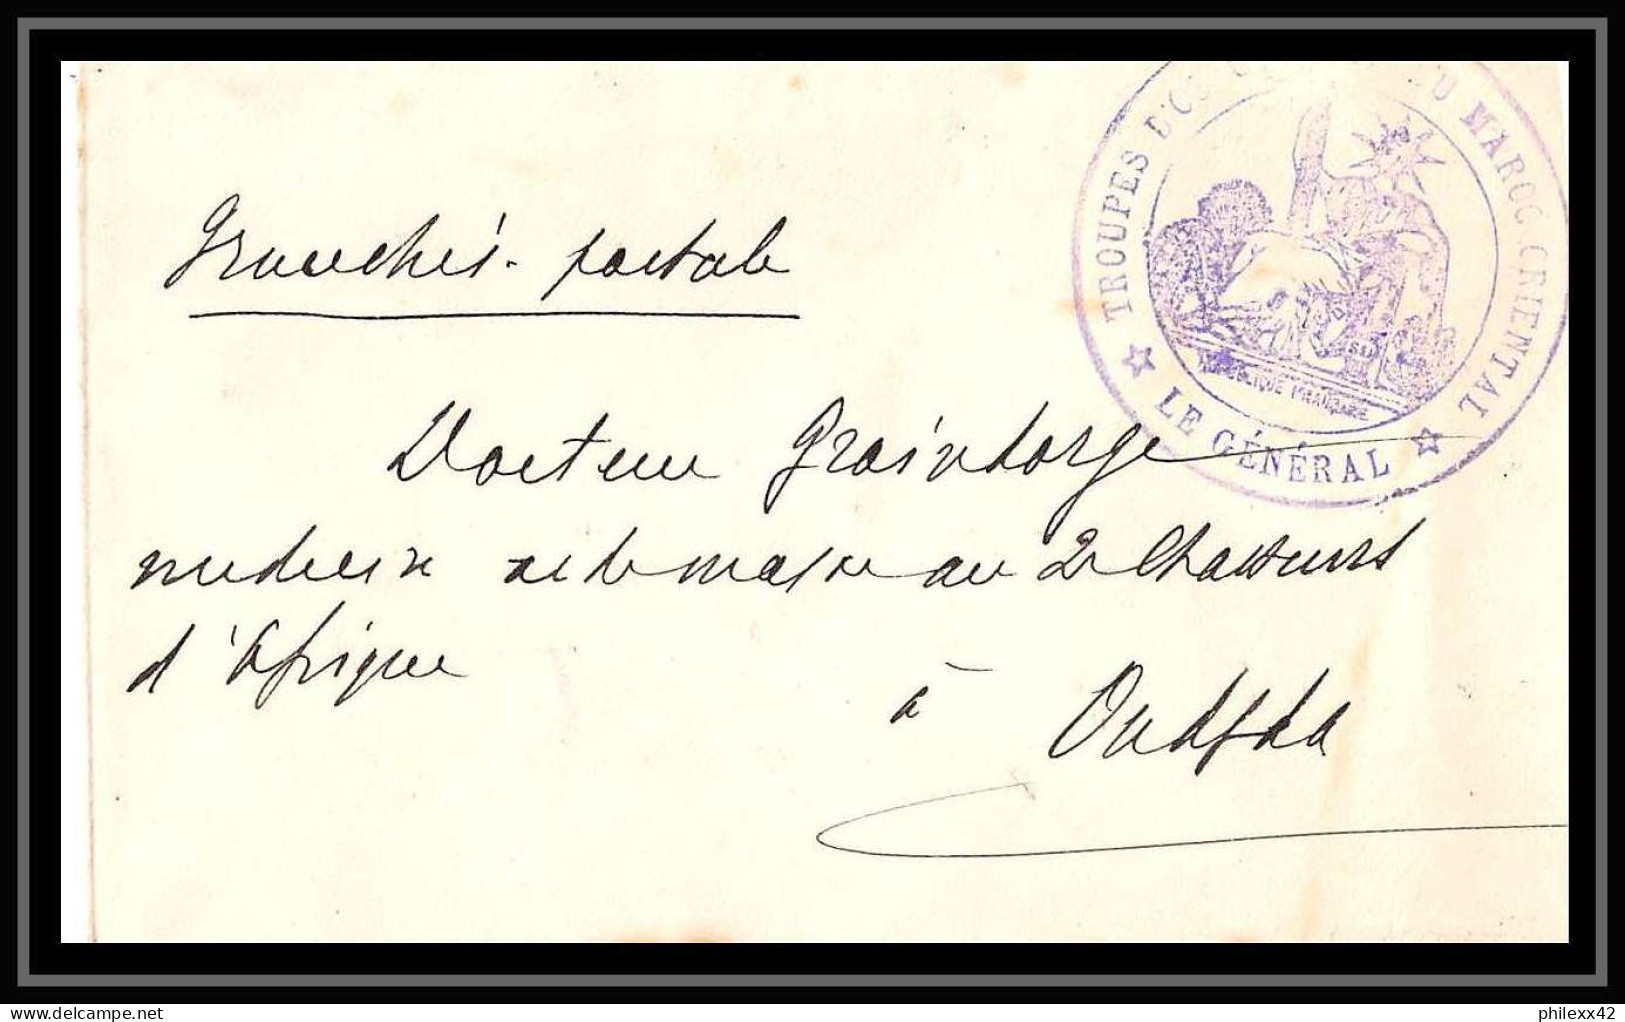 TROUPES D'OC DU MAROC ORIENTAL
LE GÉNÉRAL
RÉPUBLIQUE FRANÇAISE
Franchis. postale
Docteur Graindorge
medecin aide major au 2e Chasseurs
d'Afrique
à Oudjda
philexx42
www.delcampe.net